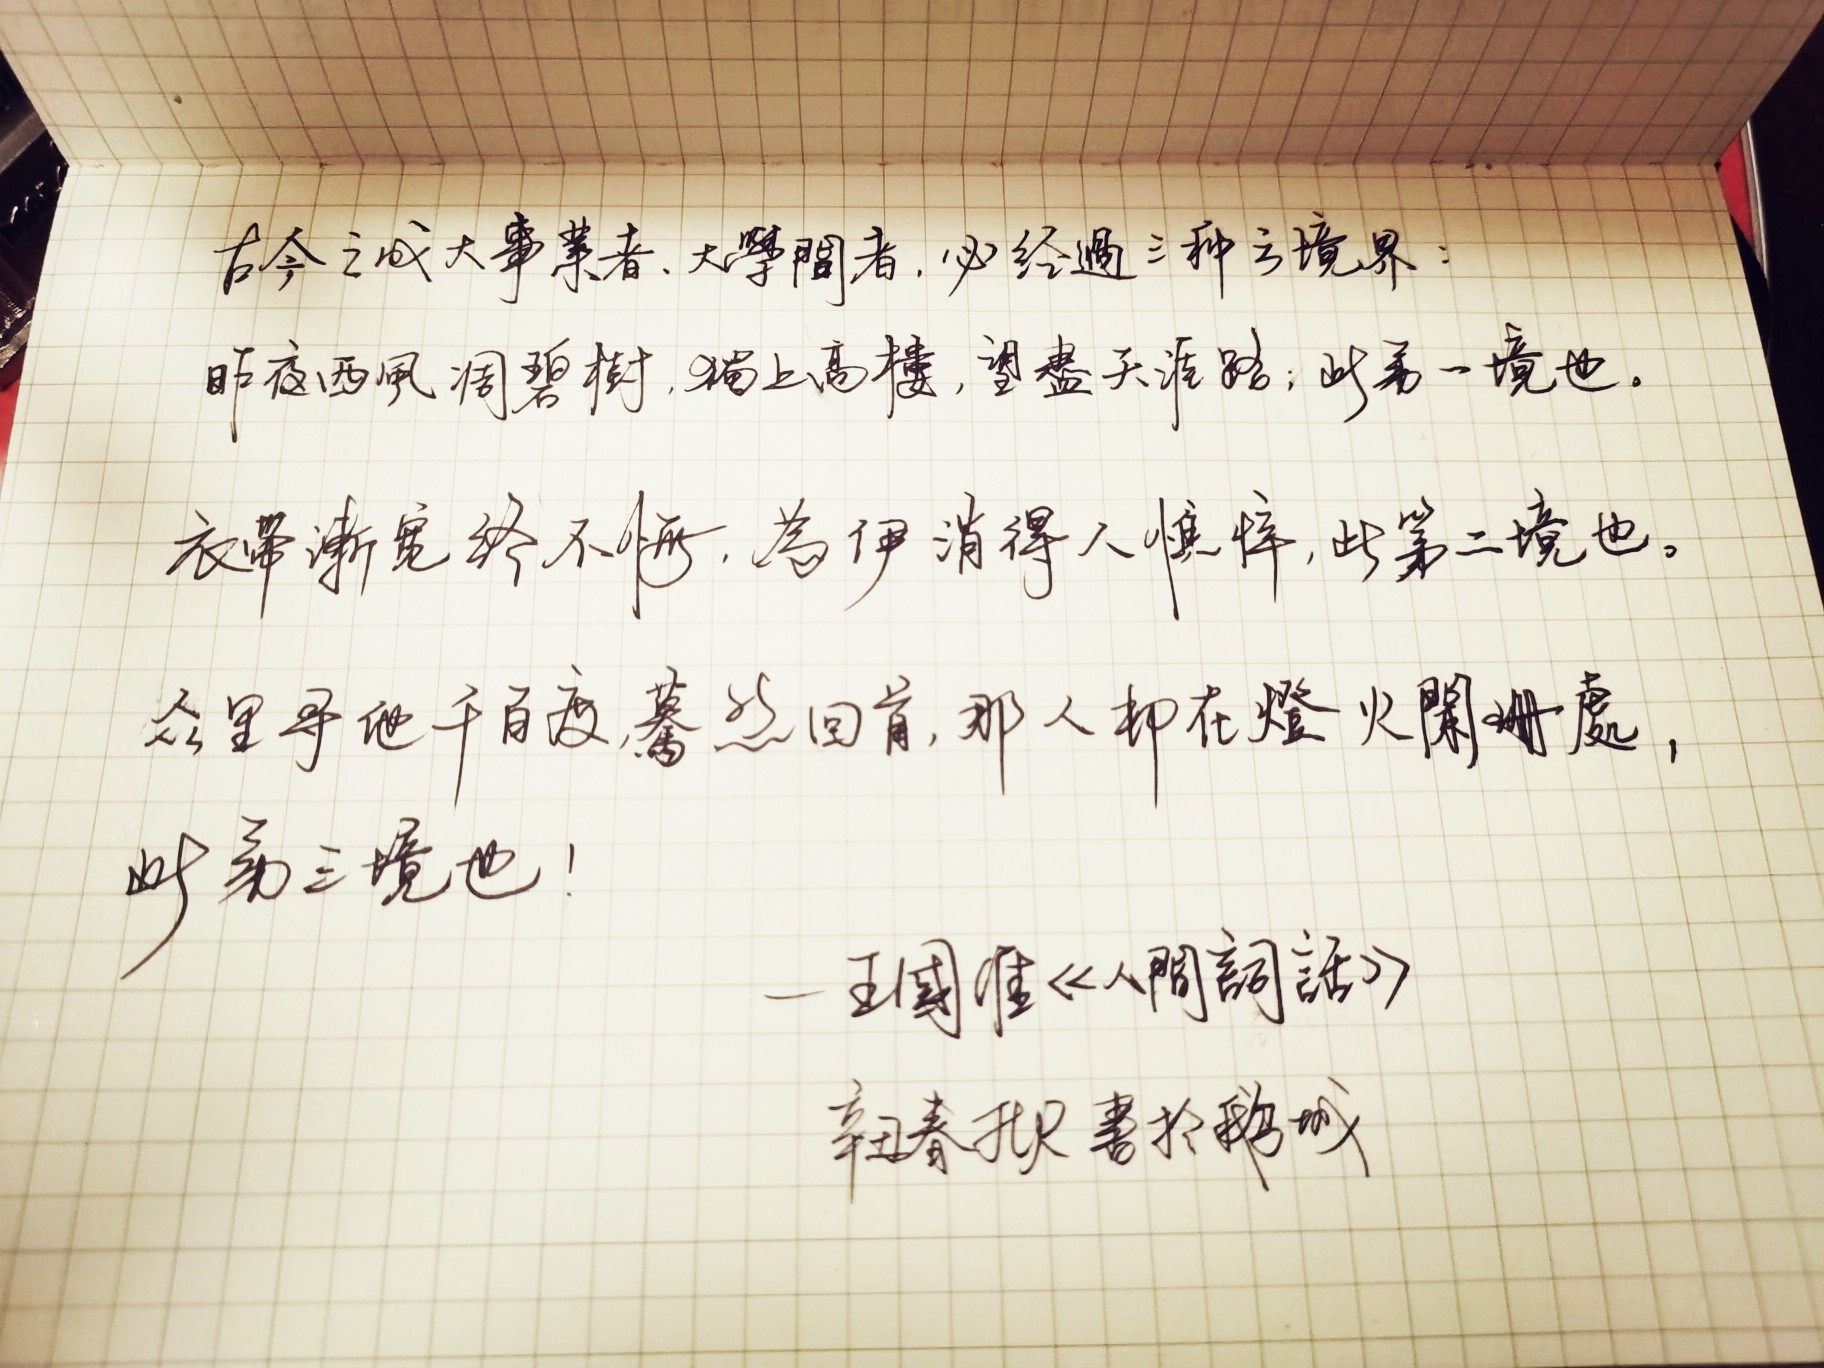 古今之成大事業者、大學問者，必经過三种之境界：
昨夜西風凋碧樹，獨上高樓，望盡天涯路；此第一境也。
衣帶漸寬終不悔，為伊消得人憔悴，此第二境也。
众里寻他千百度，驀然回首，那人却在燈火闌珊處，
此第三境也！
—王國維《人間詞話》
辛丑春 書於鵝城